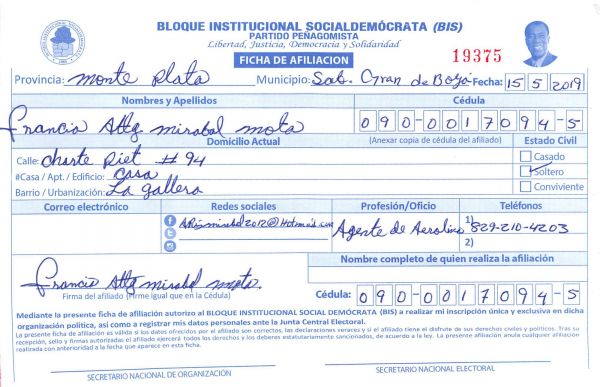 BLOQUE INSTITUCIONAL SOCIALDEMÓCRATA (BIS)
PARTIDO PEÑAGOMISTA
Libertad, Justicia, Democracia y Solidaridad
FICHA DE AFILIACION
19375
Provincia: Monte Plata Municipio: Sab. Gran de Boyá Fecha: 15 5 2019
Nombres y Apellidos Cédula
Francia Altg. mirabal mota 090-0017094-5
Domicilio Actual (Anexar copia de cédula del afiliado) Estado Civil
Calle: Charte Piet # 94 Casado
#Casa / Apt. / Edificio: Casa Soltero
Barrio / Urbanización: La gallera Conviviente
Correo electrónico Redes sociales Profesión/Oficio Teléfonos
@Hotmail.com Agente de 1) 829-210-4203
2)
Nombre completo de quien realiza la afiliación
Francia Altg mirabal mota.
Firma del afiliado (Firme igual que en la Cédula) Cédula: 090-0017094-5
Mediante la presente ficha de afiliación autorizo al BLOQUE INSTITUCIONAL SOCIAL DEMÓCRATA (BIS) a realizar mi inscripción única y exclusiva en dicha
organización política, así como a registrar mis datos personales ante la Junta Central Electoral.
La presente ficha de afiliación es válida y los datos ofrecidos por el afiliado son correctos, las declaraciones veraces y si el afiliado tiene el disfrute de sus derechos civiles y políticos. Tras su
recepción, sello y firmas autorizadas el afiliado ejercerá todos los derechos y los deberes estatutariamente sancionados, de acuerdo de la ley. La presente afiliación anula cualquier afiliación
realizada con anterioridad a la fecha que aparece en esta ficha.
SECRETARIO NACIONAL DE ORGANIZACIÓN SECRETARIO NACIONAL ELECTORAL